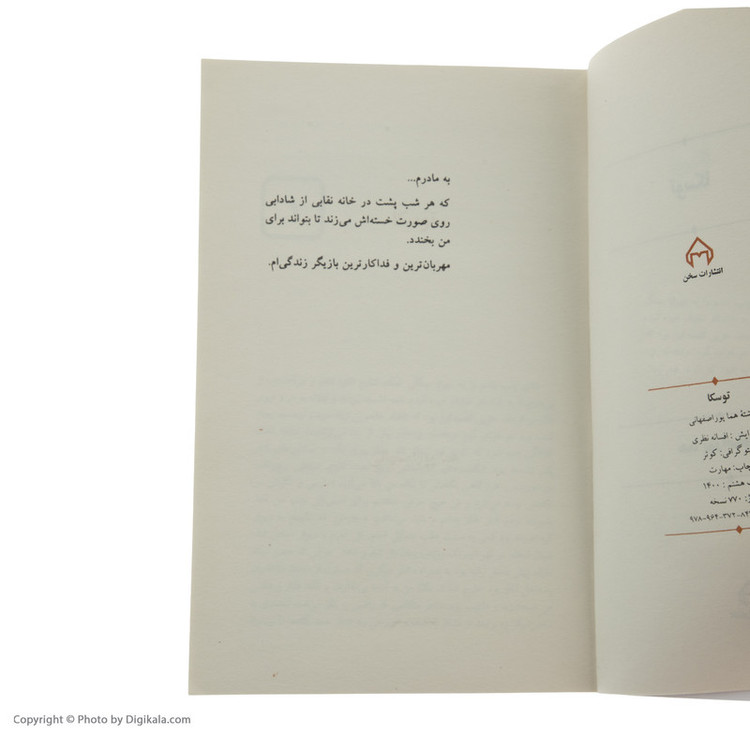 به مادرم...
که هر شب پشت در خانه نقابی از شادابی
روی صورت خسته‌اش می‌زند تا بتواند برای
من بخندد.
مهربان‌ترین و فداکارترین بازیگر زندگی‌ام.
انتشارات سخن
توسکا
هما پوراصفهانی
: افسانه نظری
گرافی: کوثر
چاپ: مهارت
هشتم : ۱۴۰۰
: ۷۷۰ نسخه
۹۷۸-۹۶۴-۳۷۲-
Copyright © Photo by Digikala.com